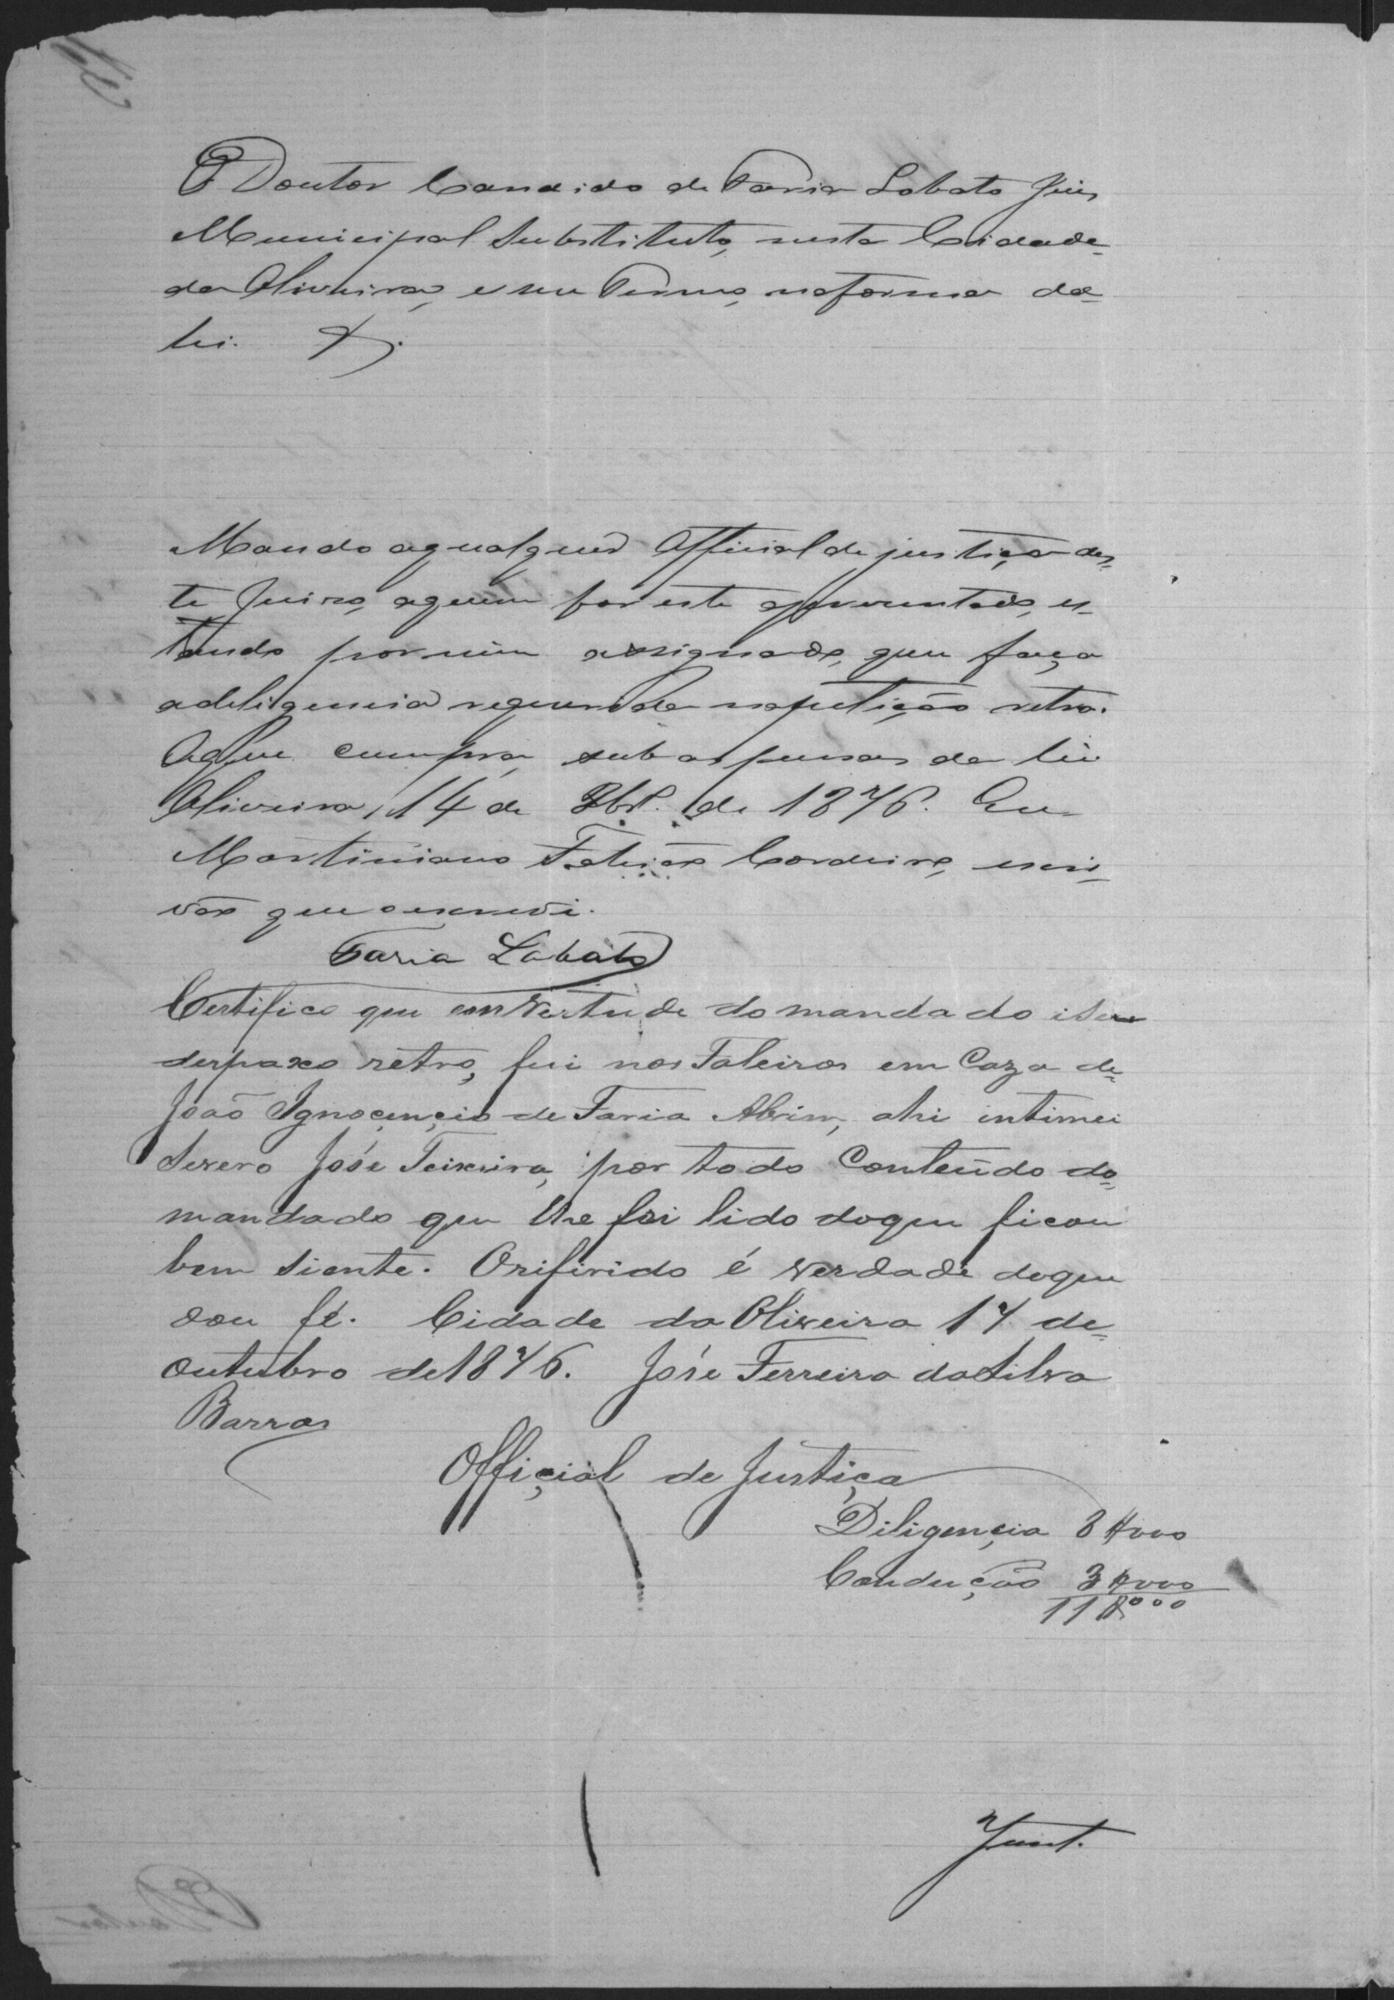 O Doutor Candido de Faria Lobato Juis
Municipal Substituto, nesta Cidade
da Oliveira, e seu Termo, na forma da
lei. &.
Mando aqualquer Official de justiça des-
te Juizo, aquem for este apresentado, es-
tando por mim assignado, que faça
adeligencia requerida napetição retro.
Oque cumpra, sub as penas da lei
Oliveira, 14 de 8br. de 1876. Eu
Martiniano Cordeiro, escri-
vão que o escrevi.
Faria Lobato
Certifico que em Vertude do mandado i seu
despaxo retro, fui nos Taleiros em Caza de
João Ignocençio de Faria Abrim, ahi intimei
Severo José Teixeira, por todo Conteudo do
mandado que lhe foi lido doque ficou
bem siente. Orifirido é verdade doque
dou fé. Cidade da Oliveira 17 de
Outubro de 1876. José Ferreira da Silva
Barros
Offiçial de Justiça
Diligençia 8$000
Condução 3$000
11$000
Junt.